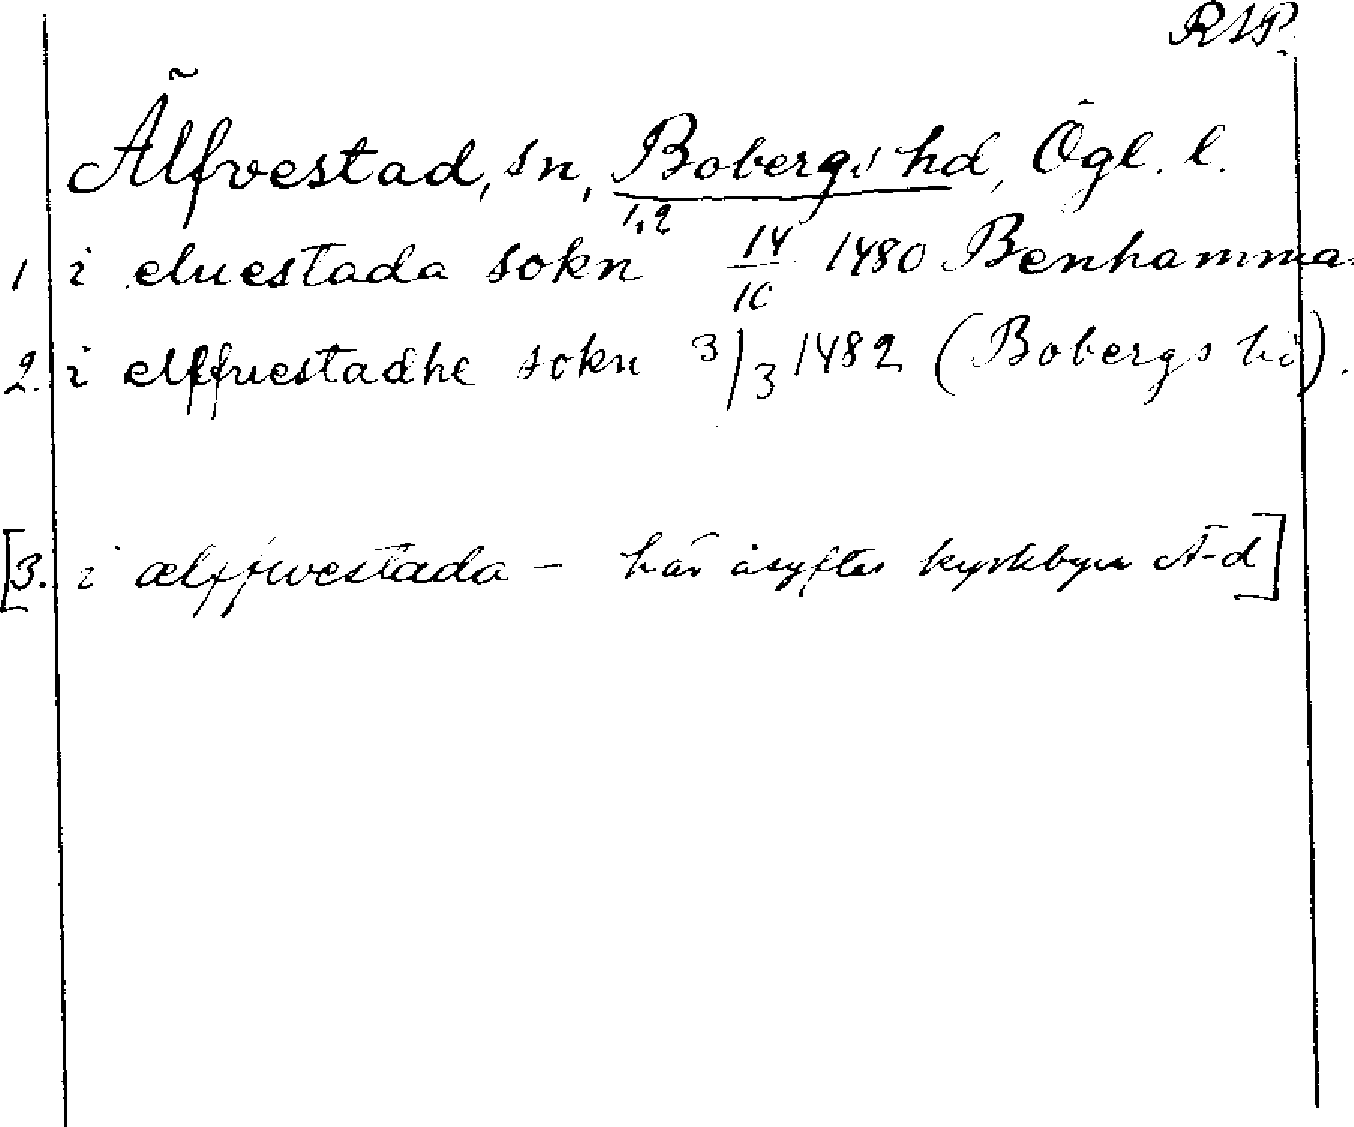 RAP.
Älfvestad, sn, Bobergs hd, Ögl. l.
1,2
1 i eluestada sokn 14/10 1480 Benhammar
2. i elffuestadhe sokn 3/3 1482 (Bobergs hd).
[3. i ælffwestada - här åsyftas kyrkbyn Ä-d]